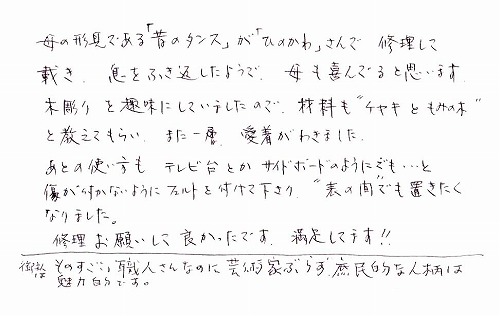 母の形見である「昔のタンス」が「ひのかわ」さんで 修理して
戴き、息をふき返したようで、母も喜んでると思います。
木彫りを趣味にしていましたので、材料も"チャキともみの木"
と教えてもらい、また一層、愛着がわきました。
あとの使い方も テレビ台とか サイドボードのようにでも…と
傷が付かないようにフェルトを付けて下さり、"表の間"でも置きたく
なりました。
修理お願いして良かったです。満足してます!!
ものすごい職人さんなのに芸術家ぶらず、庶民的な人柄は
魅力的です。